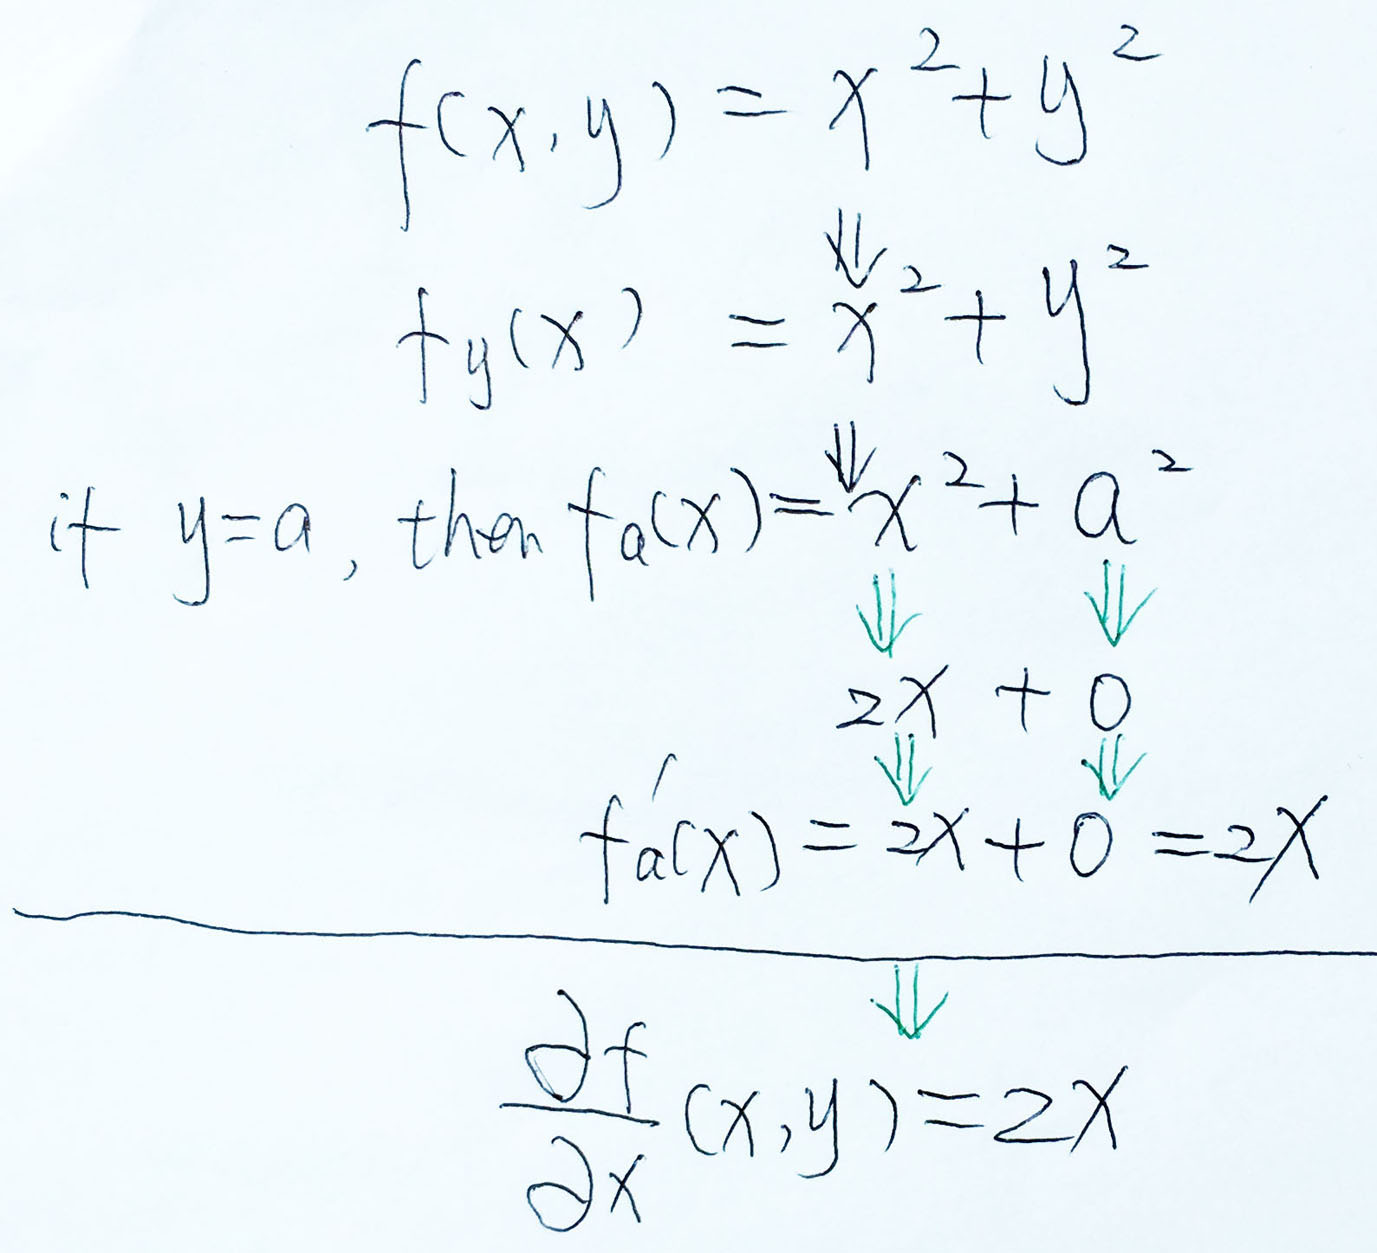 f(x,y) = x² + y²
⇓
f_y(x) = x² + y²
⇓
if y=a, then f_a(x) = x² + a²
⇓ ⇓
2x + 0
⇓ ⇓
f_a'(x) = 2x + 0 = 2x
⇓
∂f/∂x (x,y) = 2x